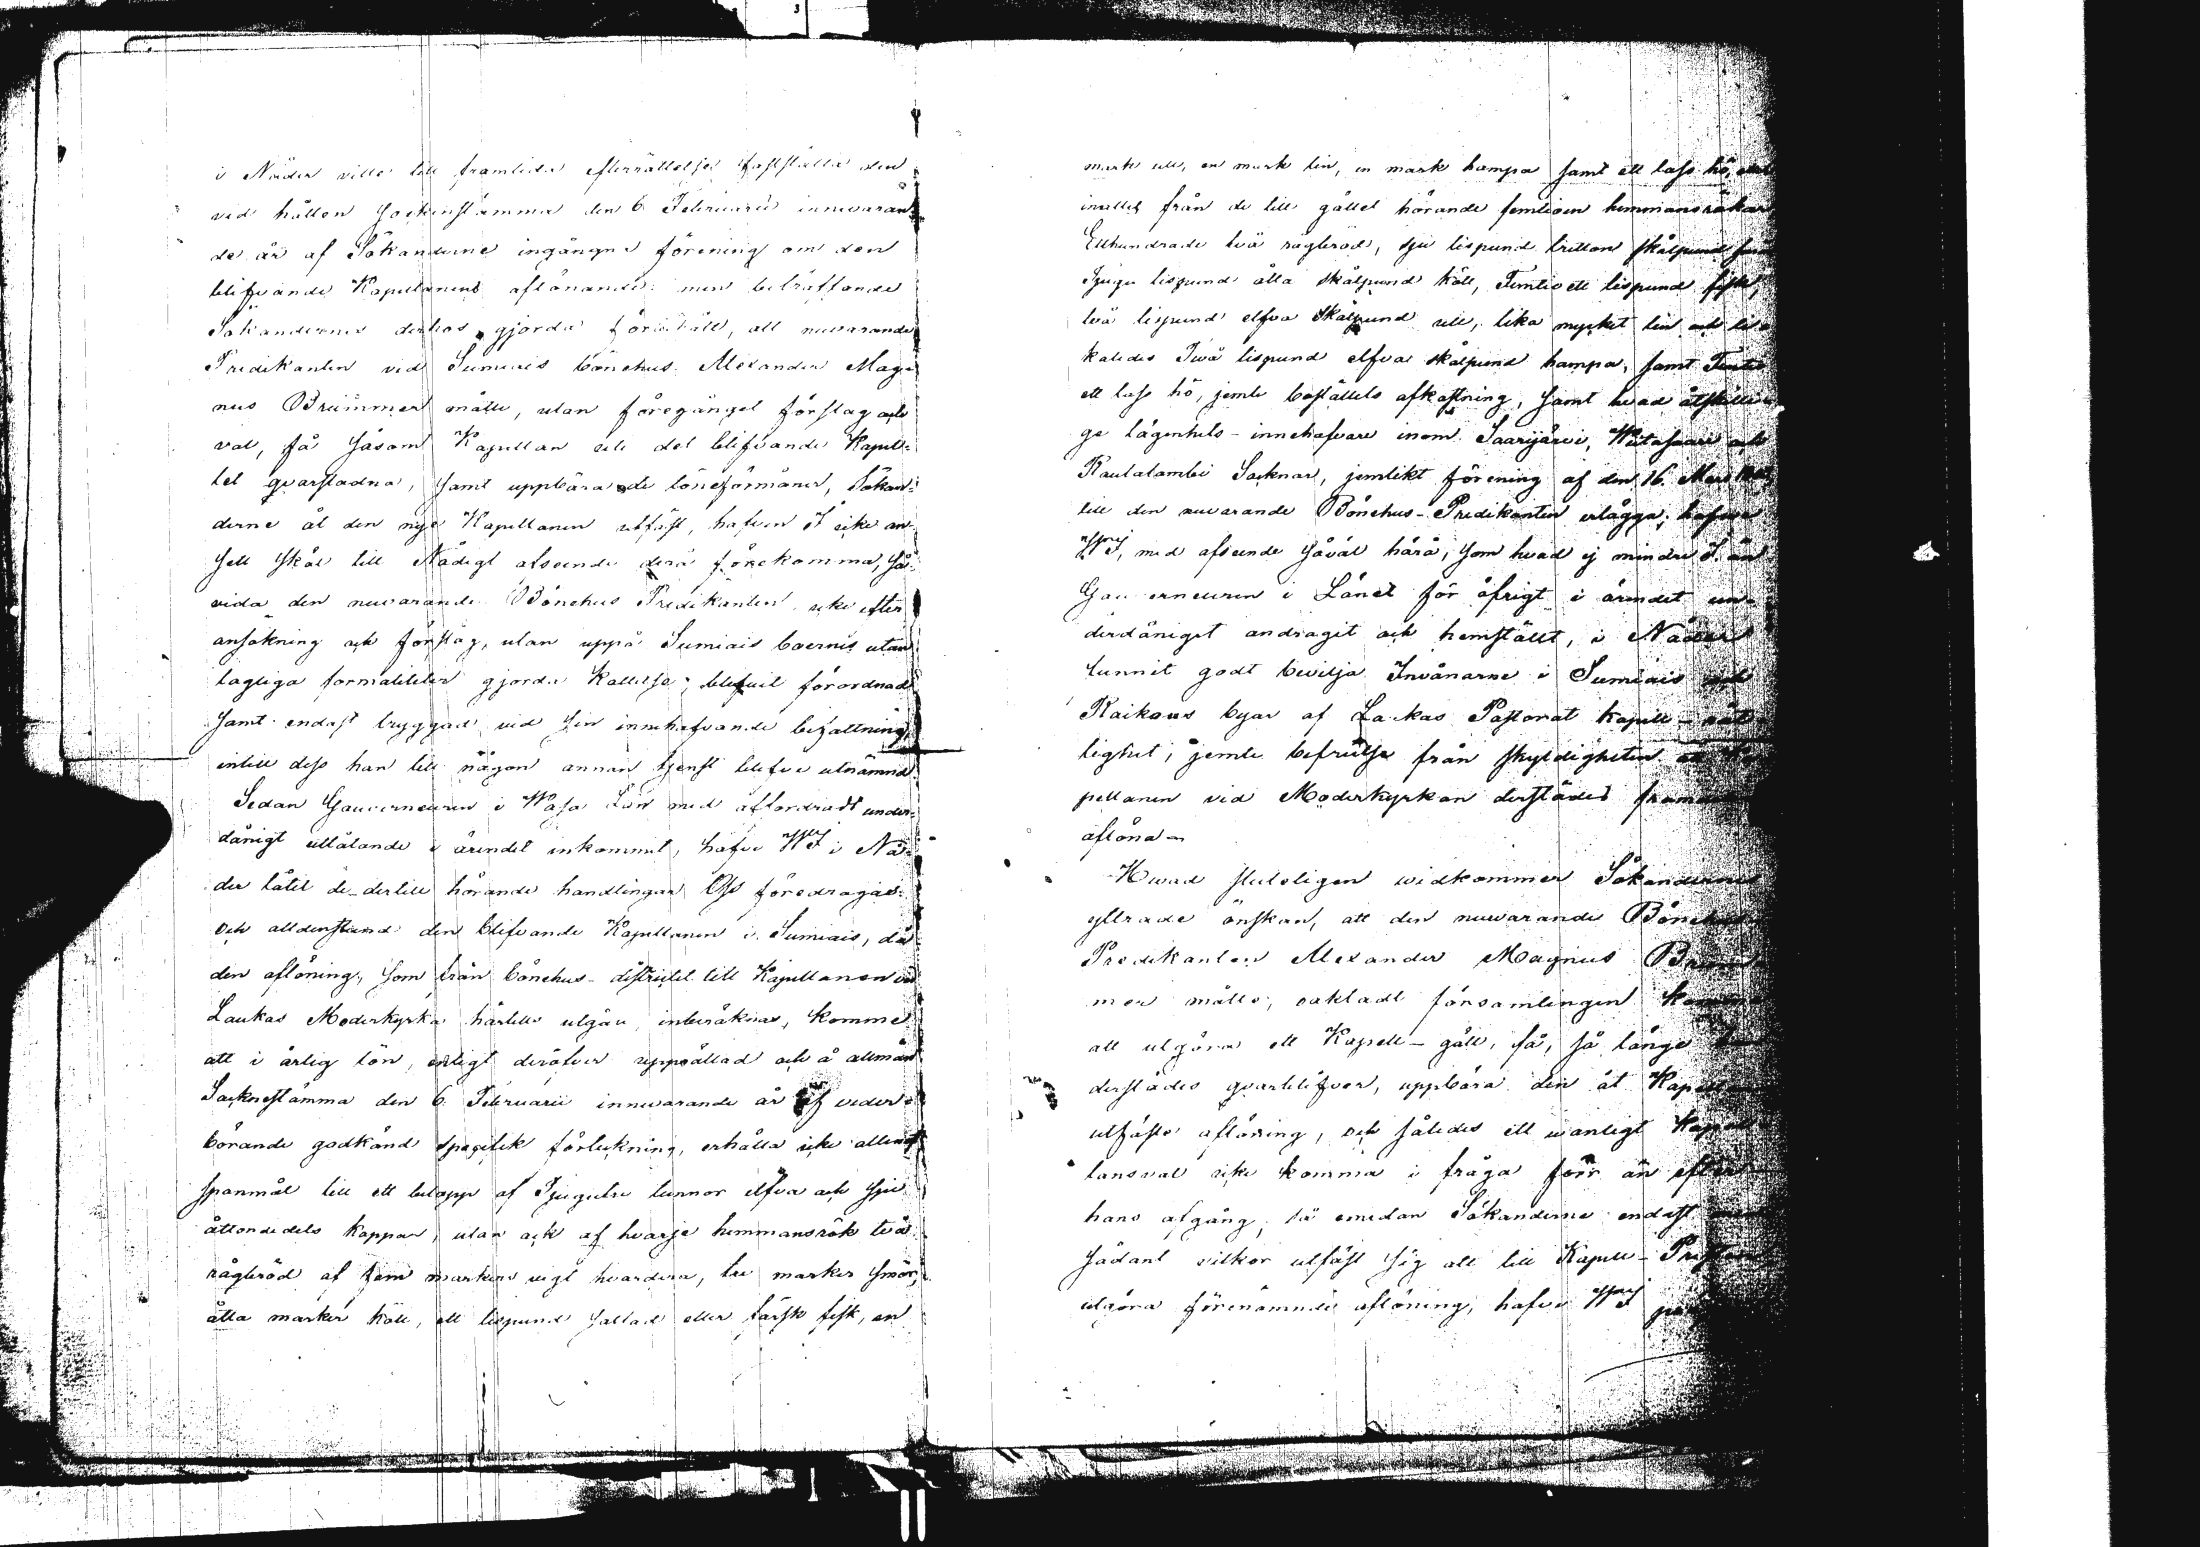 i Nåder ville till framtida efterrättelse fastställa den
vid hållen Sockenstämma den 6 Februarii innevaran-
de år af Sökanderne ingångne förening om den
blifvande Kapellanens aflönande: men beträffande
Sökandernes derhos gjorde förbehåll, att nuvarande
Predikanten vid Sumiais bönehus Alexander Mag-
nus Brummer måtte, utan föregånget förslag och
val, få såsom Kapellan vid det blifvande Kapel-
let qvarstadna, samt uppbära de löneförmåner, Sökan-
derne åt den nye Kapellanen utfäst, hafven I icke an-
sett skäl till Nådigt afseende derå förekomma, så-
vida den nuvarande Bönehus Predikanten icke efter
ansökning och förslag, utan uppå Sumiais boernes utan
lagliga formaliteter gjorda Kallelse, blifvit förordnad
samt endast tryggad vid sin innehafvande befattning,
intill dess han till någon annan tjenst blifve utnämnd
Sedan Gouverneuren i Wasa Län med affordradt under-
dånigt utlåtande i ärendet inkommit, hafve WJ i Nå-
der låtit de dertill hörande handlingar Oss föredragas:
och alldenstund den blifvande Kapellanen i Sumiais, då
den aflöning, som från bönehus-distriktet till Kapellanen vid
Laukas Moderkyrka härtills utgåu, inberäknas, komme
att i årlig lön, enligt deröfver uppsättad och å allmän
Socknestämma den 6 Februarii innevarande år af veder-
börande godkänd specifik förteckning, erhålla icke allenast
spanmål till ett belopp af Tjugutre tunnor elfva och sju
åttondedels kappar, utan ock af hvarje hemmansrök två
rågbröd af fem markers vigt hvardera, tre marker smör,
åtta marker kött, ett lispund saltad eller färsk fisk, en
mark ull, en mark lin, en mark hampa samt ett lass hö, eller
inalles från de till gället hörande femtioen hemmansrökar
Etthundrade två rågbröd, sju lispund tretton skålpund smör
Tjugu lispund åtta skålpund kött, Femtioett lispund fisk,
två lispund elfva skålpund ull, lika mycket lin och li-
kaledes Två lispund elfva skålpund hampa, samt Femtio
ett lass hö, jemte boställets afkastning, samt hvad åtskilli-
ge lägenhets-innehafvare inom Saarijärvi, Wiitasaari och
Rautalambi Socknar, jemlikt förening af den 16 Mars
till den nuvarande Bönehus-Predikanten erlägga; hafve
WJ, med afseende såväl härå, som hvad ej mindre I än
Gouverneuren i Länet för öfrigt i ärendet un-
derdånigst andragit och hemställt, i Nåder
funnit godt bevilja Invånarne i Sumiais och
Raikaus byar af Laukas Pastorat kapell-rät-
tighet, jemte befrielse från skyldigheten att Ka-
pellanen vid Moderkyrkan derstädes framdeles
aflöna.
Hwad slutligen widkommer Sökandernes
yttrade önskan, att den nuwarande Bönehus
Predikanten Alexander Magnus Brum-
mer måtte, oaktadt församlingen komme
att utgöra ett Kapell-gäll, få, så länge han
derstädes qvarblifver, uppbära den åt Kapellan
utfäste aflöning, och således ett wanligt Kapel-
lansval icke komma i fråga förr än efter
hans afgång, så emedan Sökanderne endast med
sådant vilkor utfäst sig att till Kapell-Presten
utgöra förenämnde aflöning, hafve WJ